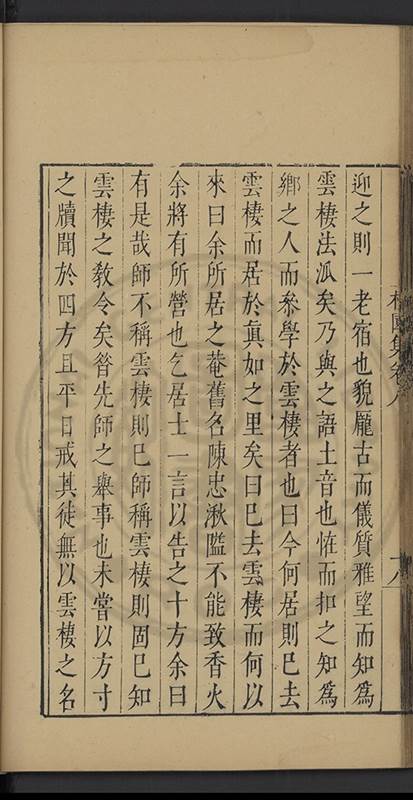 迎之則一老宿也貌龐古而儀質雅望而知爲
雲棲法派矣乃與之語土音也恠而扣之知爲
鄉之人而叅學於雲棲者也曰今何居則巳去
雲棲而居於眞如之里矣曰巳去雲棲而何以
來曰余所居之菴舊名陳忠湫隘不能致香火
余將有所營也乞居士一言以告之十方余曰
有是哉師不稱雲棲則巳師稱雲棲則固巳知
雲棲之敎令矣昝先師之舉事也未嘗以方寸
之牘聞於四方且平日戒其徒無以雲棲之名
集卷八
十八